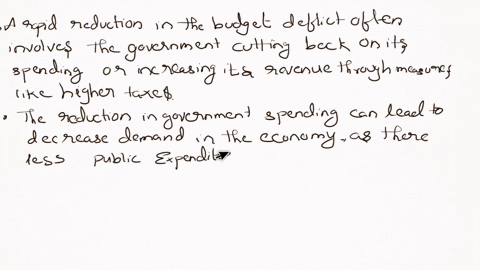 . A rapid reduction in the budget deficit often
involves the government cutting back on its
spending or increasing its revenue through measures
like higher taxes.
• The reduction in government spending can lead to
decrease demand in the economy, as there
less public Expendit